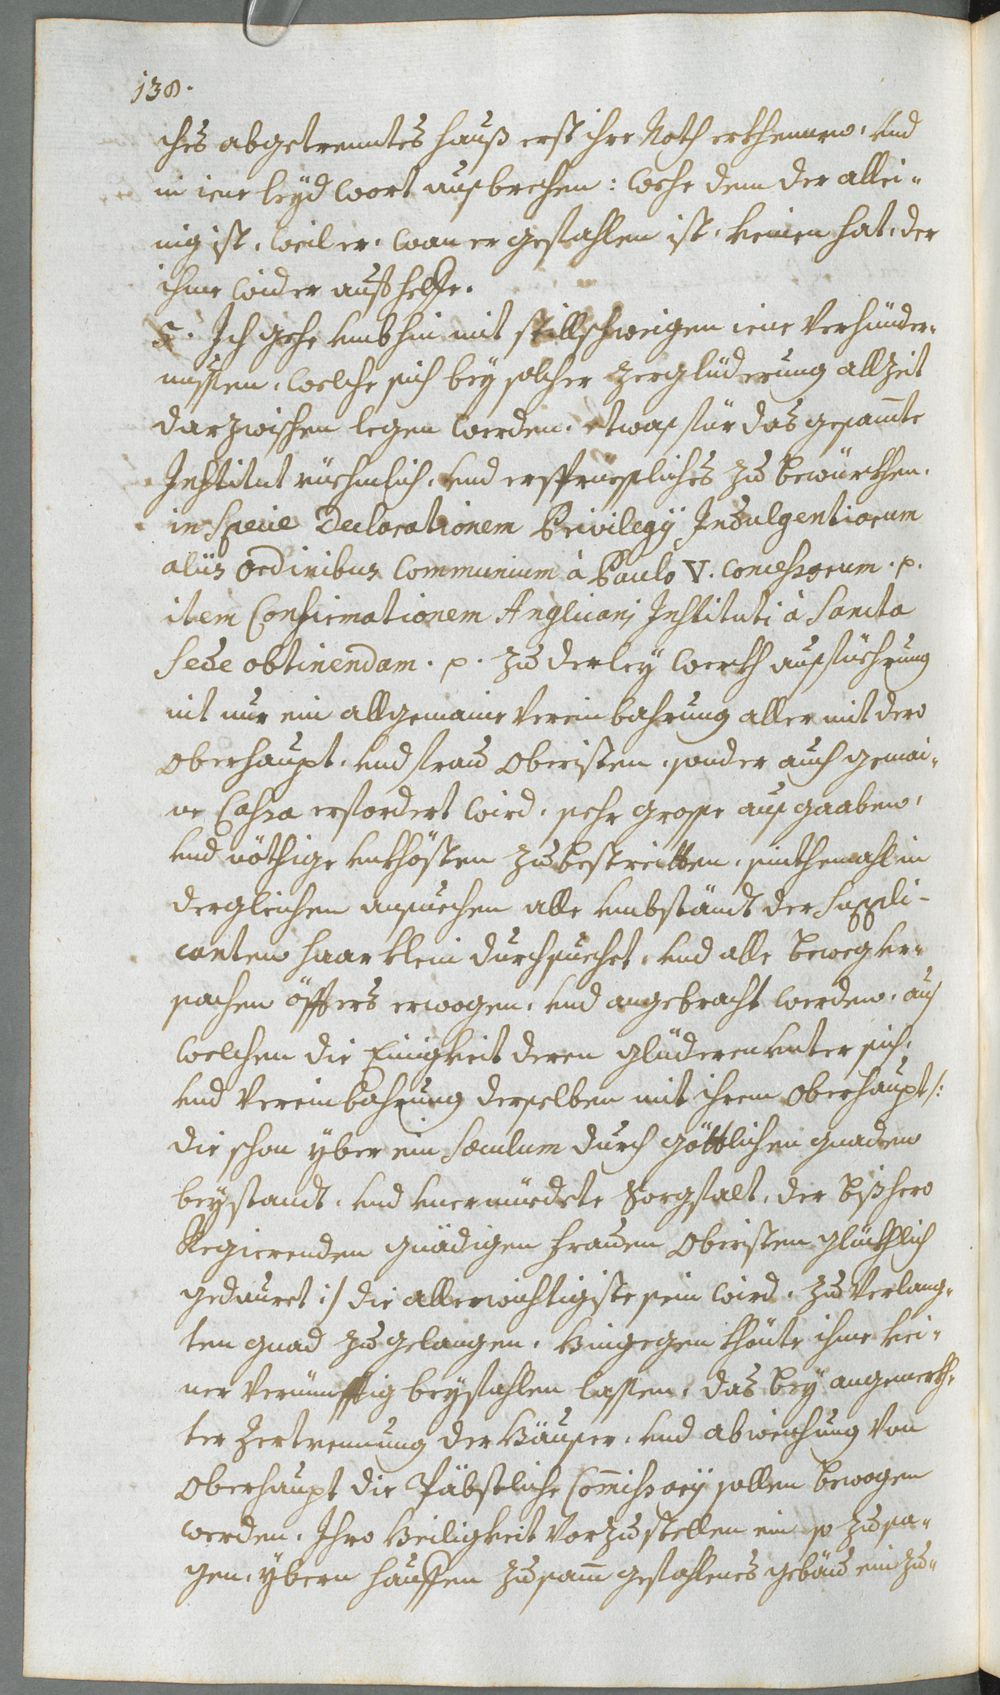 138.
ches abgetrenntes hauß erst ihre Noth erkhennen, und
in iene leyd wort ausbrechen: wehe dem der allei-
nig ist, weil er, wan er gefahlen ist, keinen hat, der
ihme wider auff helffe.
5. Ich gehe umbhin mit stillschweigen iene verhünder-
nussen, welche sich bey solcher zerglüderung allzeit
darzwischen legen werden, etwas für das gesam̅te
Institut rüehmlich, und erspriessliches zu bewürkhen.
in Specie Declarationem Privilegÿ Indulgentiarum
alÿs ordinibus Communium à Paulo V. concessarum. p.
item Confirmationem Anglicani Instituti à Sancta
Sede obtinendam. p. zu derley werkh ausführung
nit nur ein allgemaine vereinbahrung aller mit dero
Oberhaupt, und frau Oberisten, sonder auch gemai-
ne Cassa erfordert wird, sehr grosse ausgaaben,
und nöthige unkhösten zu bestreitten, sinthemahl in
dergleichen ansuechen alle umbständt der Suppli-
canten haar klein durchsuechet, und alle beweg ur-
sachen öffters erwogen, und angebracht werden, aus
welchen die Einigkeit deren glüderen unter sich,
und vereinbahrung derselben mit ihrem Oberhaupt /:
die schon yber ein Sæculum durch göttlichen gnaden
beystandt, und unermüedete Sorgfalt, der bißhero
Regierenden gnädigen frauen Oberisten glückhlich
gedauret :/ die allerwichtigiste sein wird, zu verlang-
ten gnad zu gelangen. Hingegen khönte ihme kei-
ner vernünfftig beyfahlen lassen, das bey angemerkh-
ter zertrennung der Häuser, und abweichung von
Oberhaupt die Päbstliche Com̅issarÿ sollen bewogen
werden, Ihro Heiligkeit vorzustellen ein so zu sa-
gen, ybern hauffen zusam̅ gefahlenes gebäu einzu-